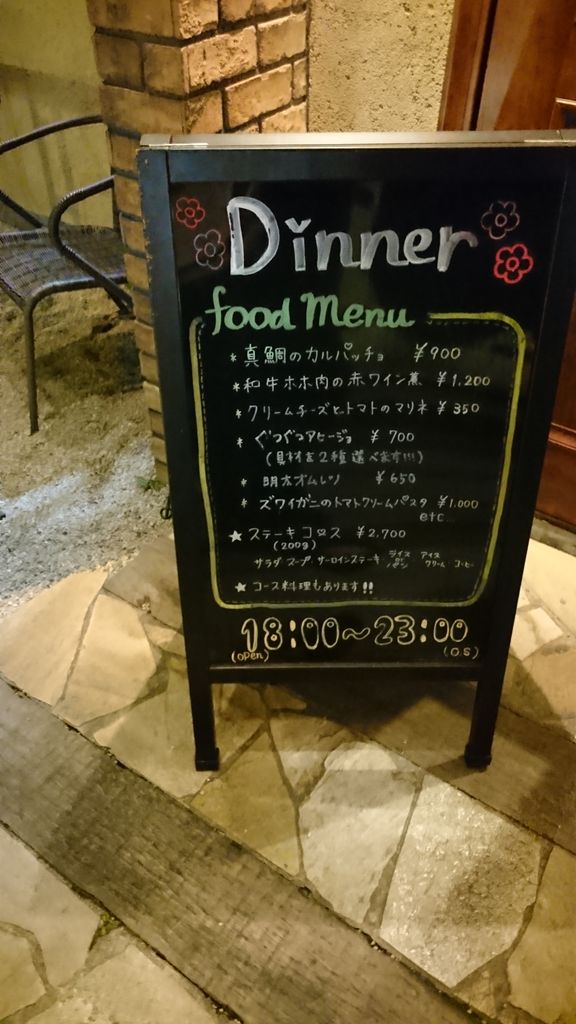 Dinner
food Menu
* 真鯛のカルパッチョ ¥900
* 和牛ホホ肉の赤ワイン煮 ¥1.200
* クリームチーズとトマトのマリネ ¥350
* ぐつぐつアヒージョ ¥700
(具材を2種選べます!!!)
* 明太オムレツ ¥650
* ズワイガニのトマトクリームパスタ ¥1.000
etc
★ ステーキコース ¥2,700
(200g)
サラダ スープ サーロインステーキ ライス or パン アイスクリーム コーヒー
★ コース料理もあります!!
18:00~23:00
(open) (O.S)